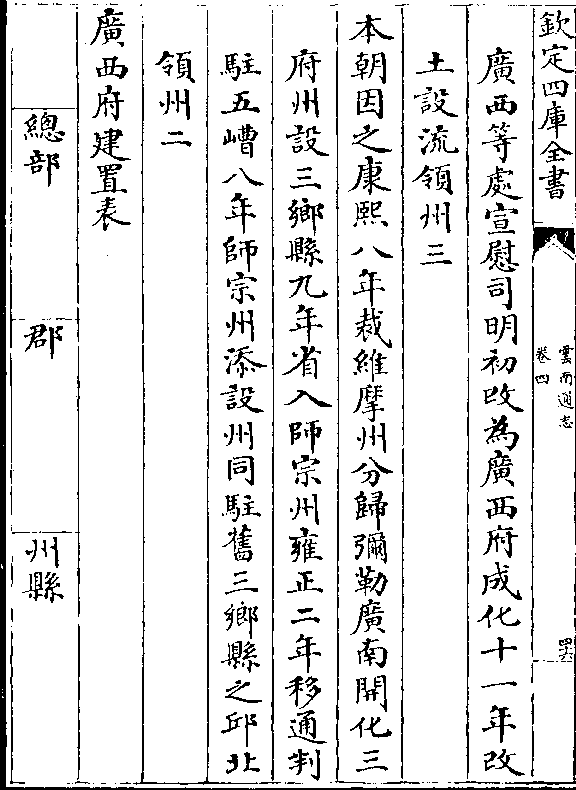 欽定四庫全書
雲南通志
卷四
四六
廣西等處宣慰司明初改為廣西府成化十一年改
土設流領州三
本朝因之康熙八年裁維摩州分歸彌勒廣南開化三
府州設三鄉縣九年省入師宗州雍正二年移通判
駐五嶆八年師宗州添設州同駐舊三鄉縣之邱北
領州二
廣西府建置表
總部
郡
州縣